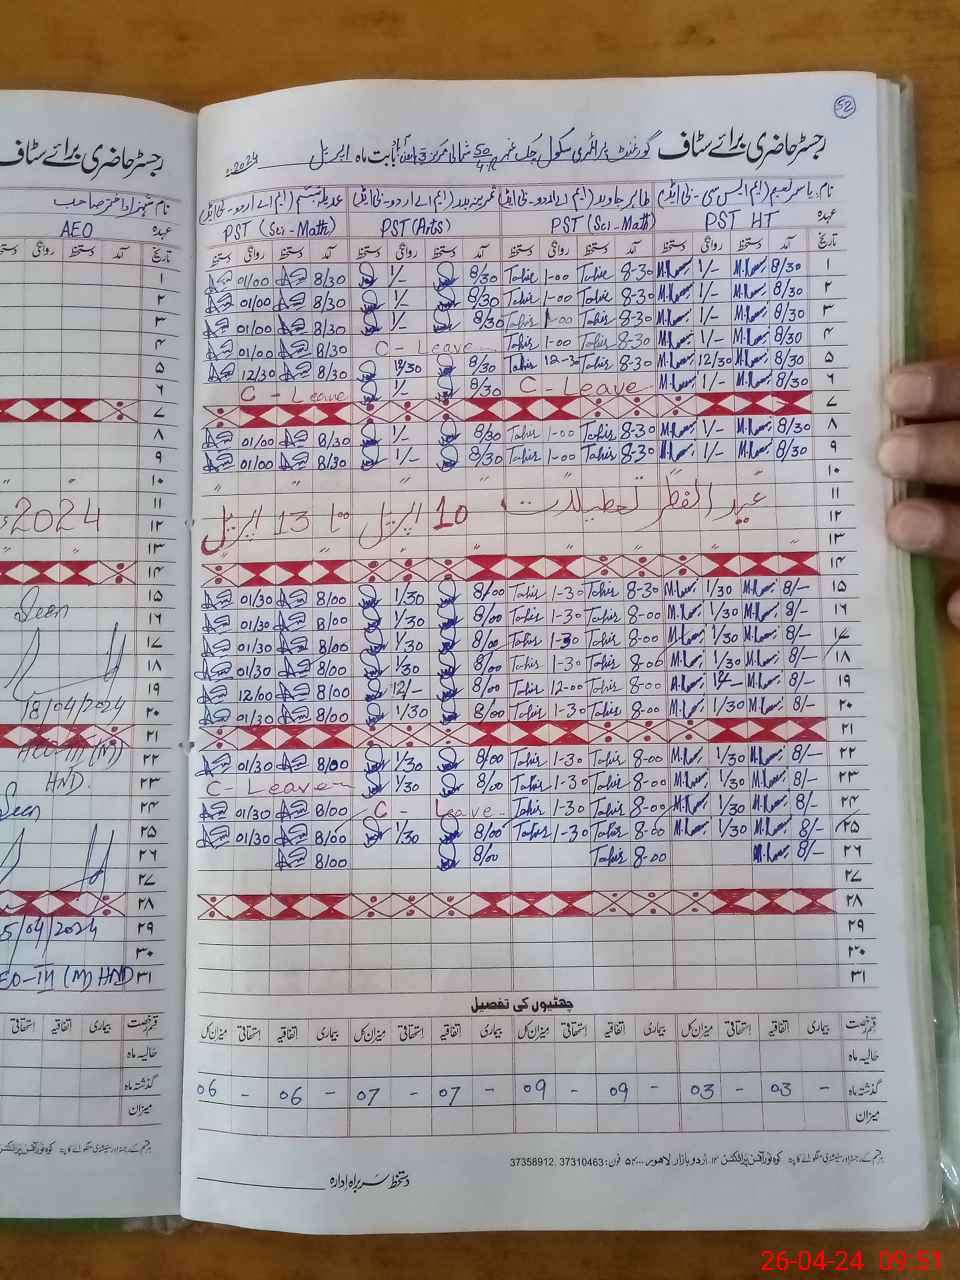 52
رجسٹر حاضری برائے سٹاف گورنمنٹ پرائمری سکول چک نمبر 50/4R شمالی مرکز بابت ماہ اپریل 2024ء
نام یاسر نعیم (ایم ایس سی - بی ایڈ) طاہر جاوید (ایم اے اردو - بی ایڈ) (ایم اے اردو - بی ایڈ) (ایم اے اردو - بی ایڈ)
عہدہ PST HT PST (Sci-Math) PST (Arts) PST (Sci-Math)
تاریخ آمد دستخط روانگی دستخط آمد دستخط روانگی دستخط آمد دستخط روانگی دستخط آمد دستخط روانگی دستخط
۱ 8/30 1/- 8-30 Tahir 1-00 Tahir 8/30 1/- 8/30 01/00
۲ 8/30 1/- 8-30 Tahir 1-00 Tahir 8/30 1/- 8/30 01/00
۳ 8/30 1/- 8-30 Tahir 1-00 Tahir 8/30 1/- 8/30 01/00
۴ 8/30 1/- 8-30 Tahir 1-00 Tahir C - Leave 8/30 01/00
۵ 8/30 12/30 8-30 Tahir 12-30 Tahir 8/30 12/30 8/30 12/30
۶ 8/30 1/- C - Leave 8/30 1/- C - Leave
۷
۸ 8/30 1/- 8-30 Tahir 1-00 Tahir 8/30 1/- 8/30 01/00
۹ 8/30 1/- 8-30 Tahir 1-00 Tahir 8/30 1/- 8/30 01/00
۱۰ " " " " " "
۱۱
عید الفطر تعطیلات 10 اپریل تا 13 اپریل
۱۲
۱۳ " " " " "
۱۴
۱۵ 8/- 1/30 8-30 Tahir 1-30 Tahir 8/00 1/30 8/00 01/30
۱۶ 8/- 1/30 8-00 Tahir 1-30 Tahir 8/00 1/30 8/00 01/30
۱۷ 8/- 1/30 8-00 Tahir 1-30 Tahir 8/00 1/30 8/00 01/30
۱۸ 8/- 1/30 8-00 Tahir 1-30 Tahir 8/00 1/30 8/00 01/30
۱۹ 8/- 12/- 8-00 Tahir 12-00 Tahir 8/00 12/- 8/00 12/00
۲۰ 8/- 1/30 8-00 Tahir 1-30 Tahir 8/00 1/30 8/00 01/30
۲۱
۲۲ 8/- 1/30 8-00 Tahir 1-30 Tahir 8/00 1/30 8/00 01/30
۲۳ 8/- 1/30 8-00 Tahir 1-30 Tahir 8/00 1/30 C - Leave
۲۴ 8/- 1/30 8-00 Tahir 1-30 Tahir C - Leave 8/00 01/30
۲۵ 8/- 1/30 8-00 Tahir 1-30 Tahir 8/00 1/30 8/00 01/30
۲۶ 8/- 8-00 Tahir 8/00 8/00
۲۷
۲۸
۲۹
۳۰
۳۱
چھٹیوں کی تفصیل
قسم رخصت بیماری اتفاقیہ استحقاقی میزان کل بیماری اتفاقیہ استحقاقی میزان کل بیماری اتفاقیہ استحقاقی میزان کل بیماری اتفاقیہ استحقاقی میزان کل
حالیہ ماہ
گذشتہ ماہ - 03 - 03 - 09 - 09 - 07 - 07 - 06 - 06
میزان
اردو بازار لاہور فون: 37310463, 37358912
دستخط سربراہ ادارہ
رجسٹر حاضری برائے سٹاف
نام شہزاد اختر صاحب
عہدہ AEO
تاریخ آمد دستخط روانگی
۱
۲
۳
۴
۵
۶
۷
۸
۹
۱۰ " "
۱۱
2024
۱۲
۱۳ " "
۱۴
۱۵
Seen
۱۶
۱۷
۱۸
۱۹
18/04/2024
۲۰
۲۱
AEO-III (M)
۲۲
HND.
۲۳
Seen
۲۴
۲۵
۲۶
۲۷
۲۸
5/04/2024
۲۹
۳۰
EO-III (M) HND
۳۱
قسم رخصت بیماری اتفاقیہ استحقاقی
حالیہ ماہ
گذشتہ ماہ
میزان
26-04-24 09:51